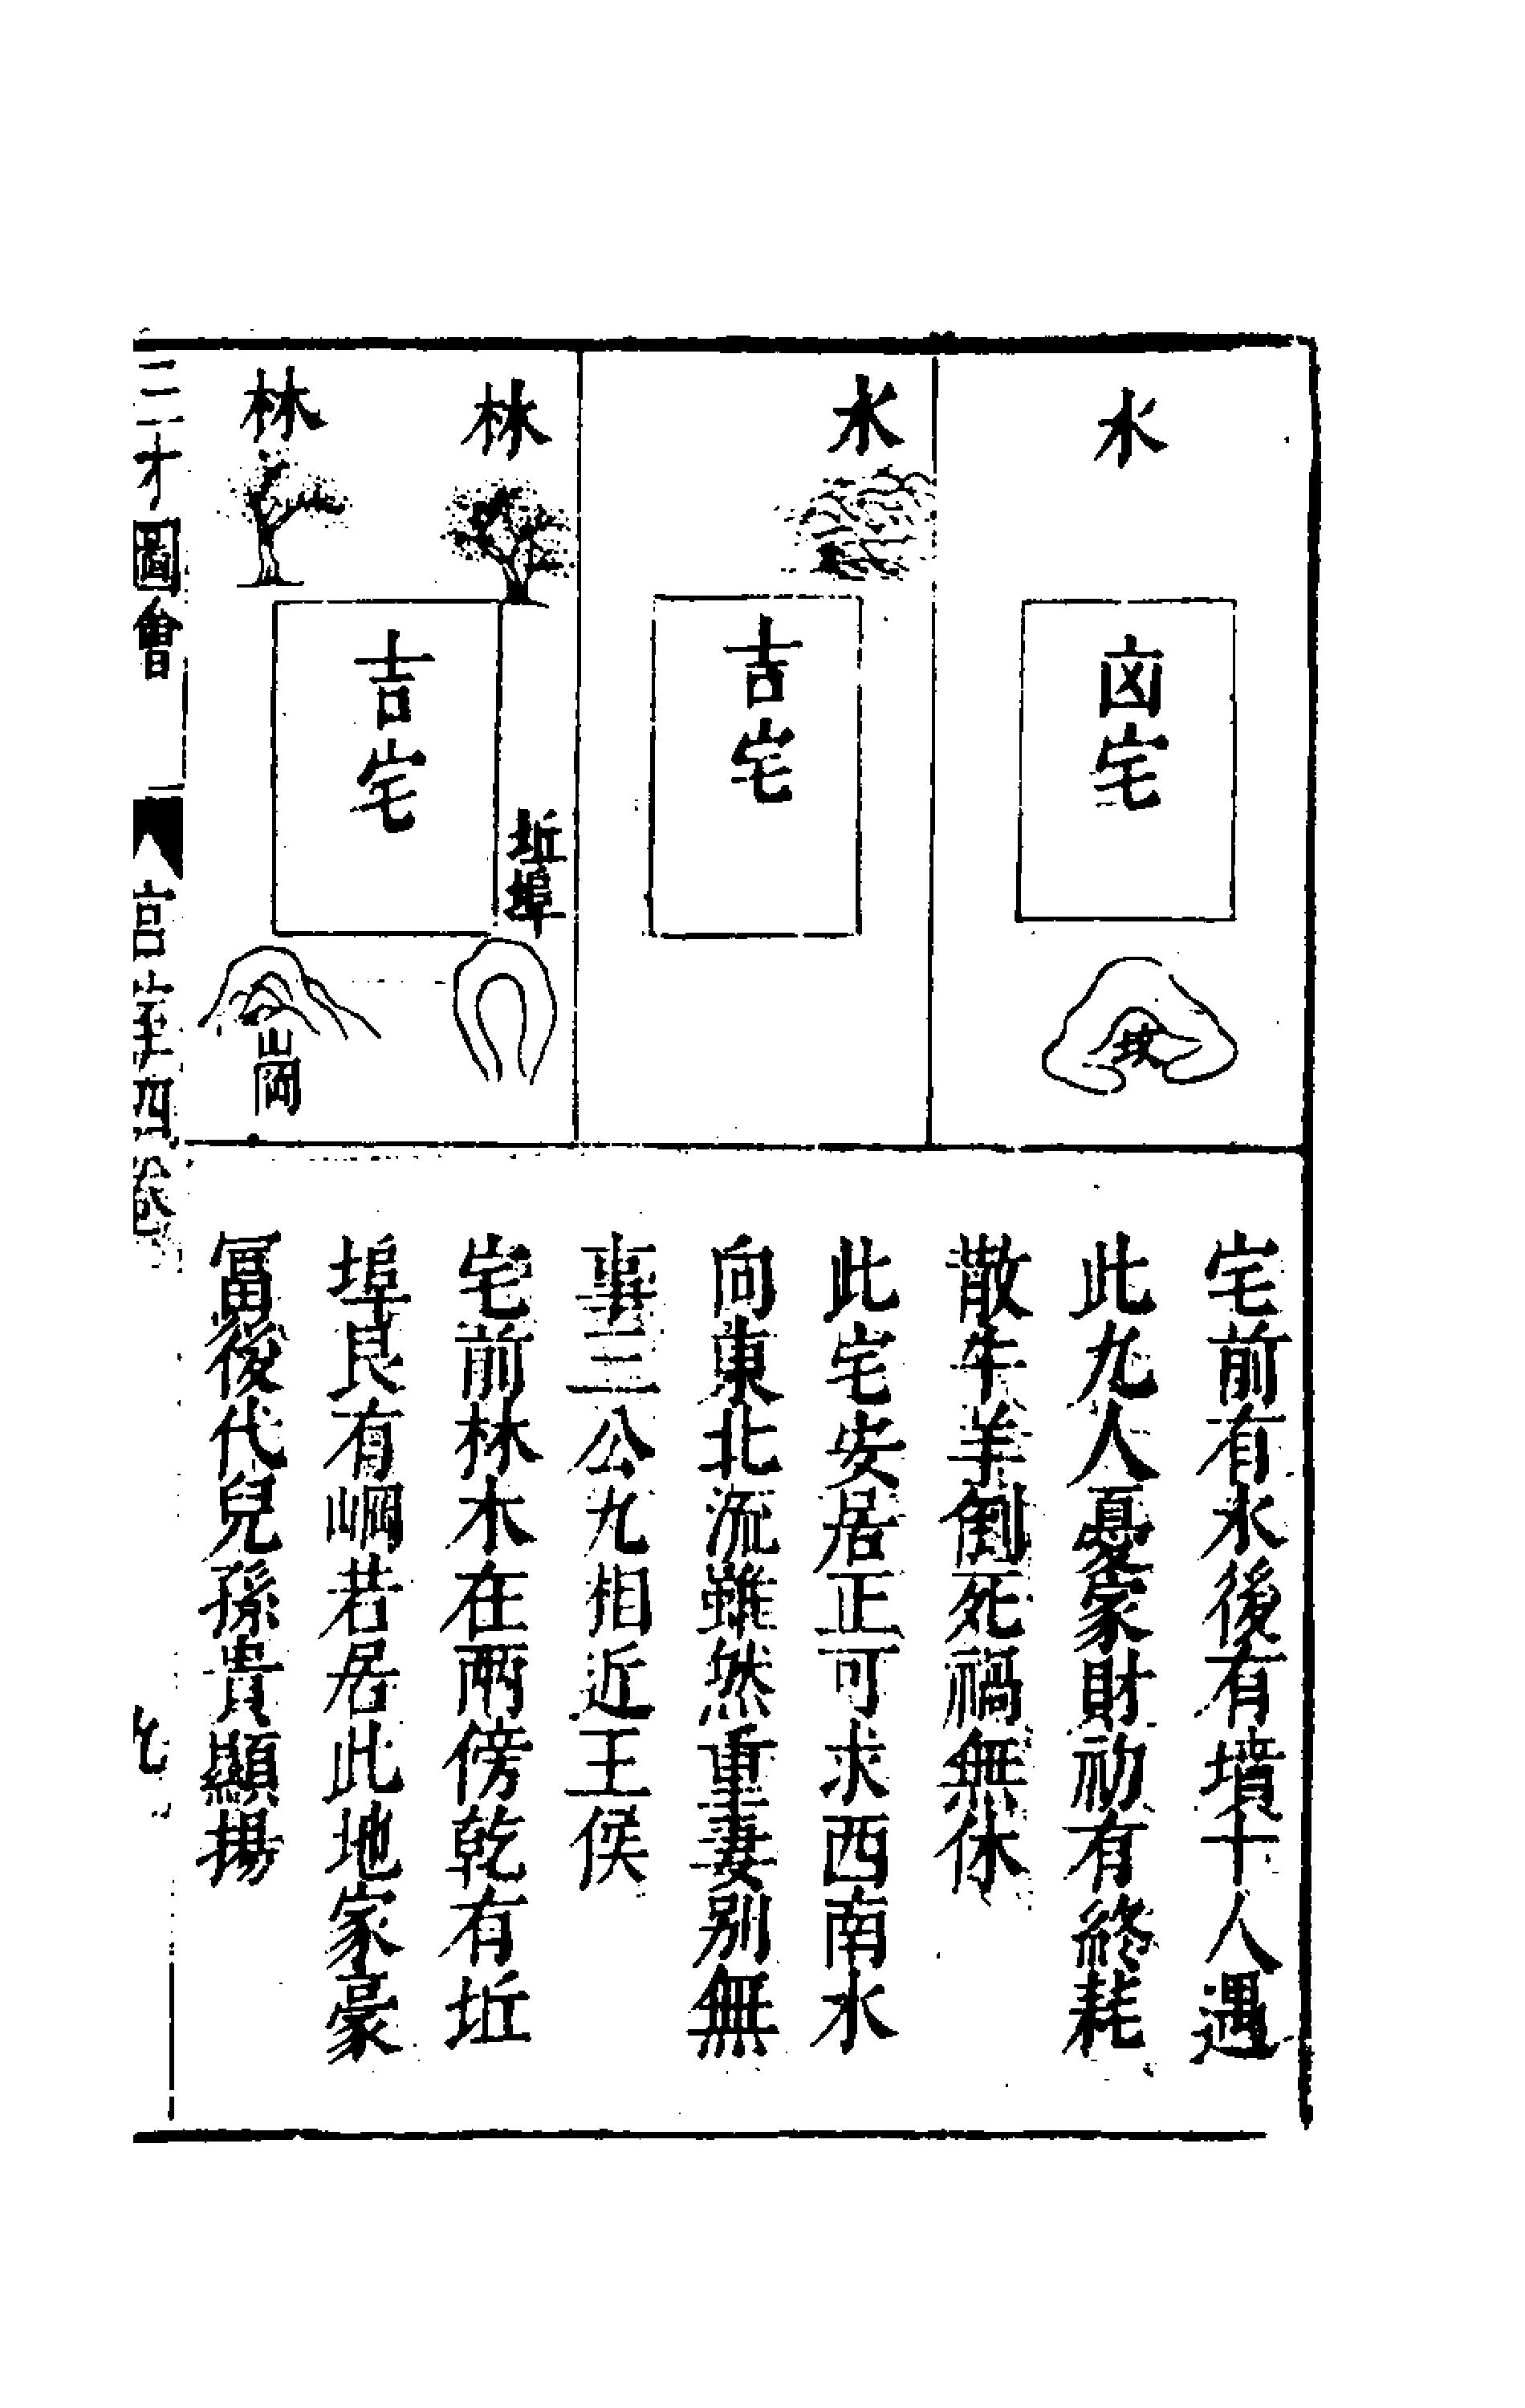 水
凶宅
坟
水
吉宅
林
林
吉宅
坵埠
山岡
宅前有水後有墳十人遇
此九人憂家財初有終耗
散牛羊倒死禍無休
此宅安居正可求西南水
向東北流雖然重妻別無
事三公九相近王侯
宅前林木在兩傍乾有坵
埠艮有崗若居此地家豪
冨後代兒孫貴顯揚
三才圖會
宫室四卷
九